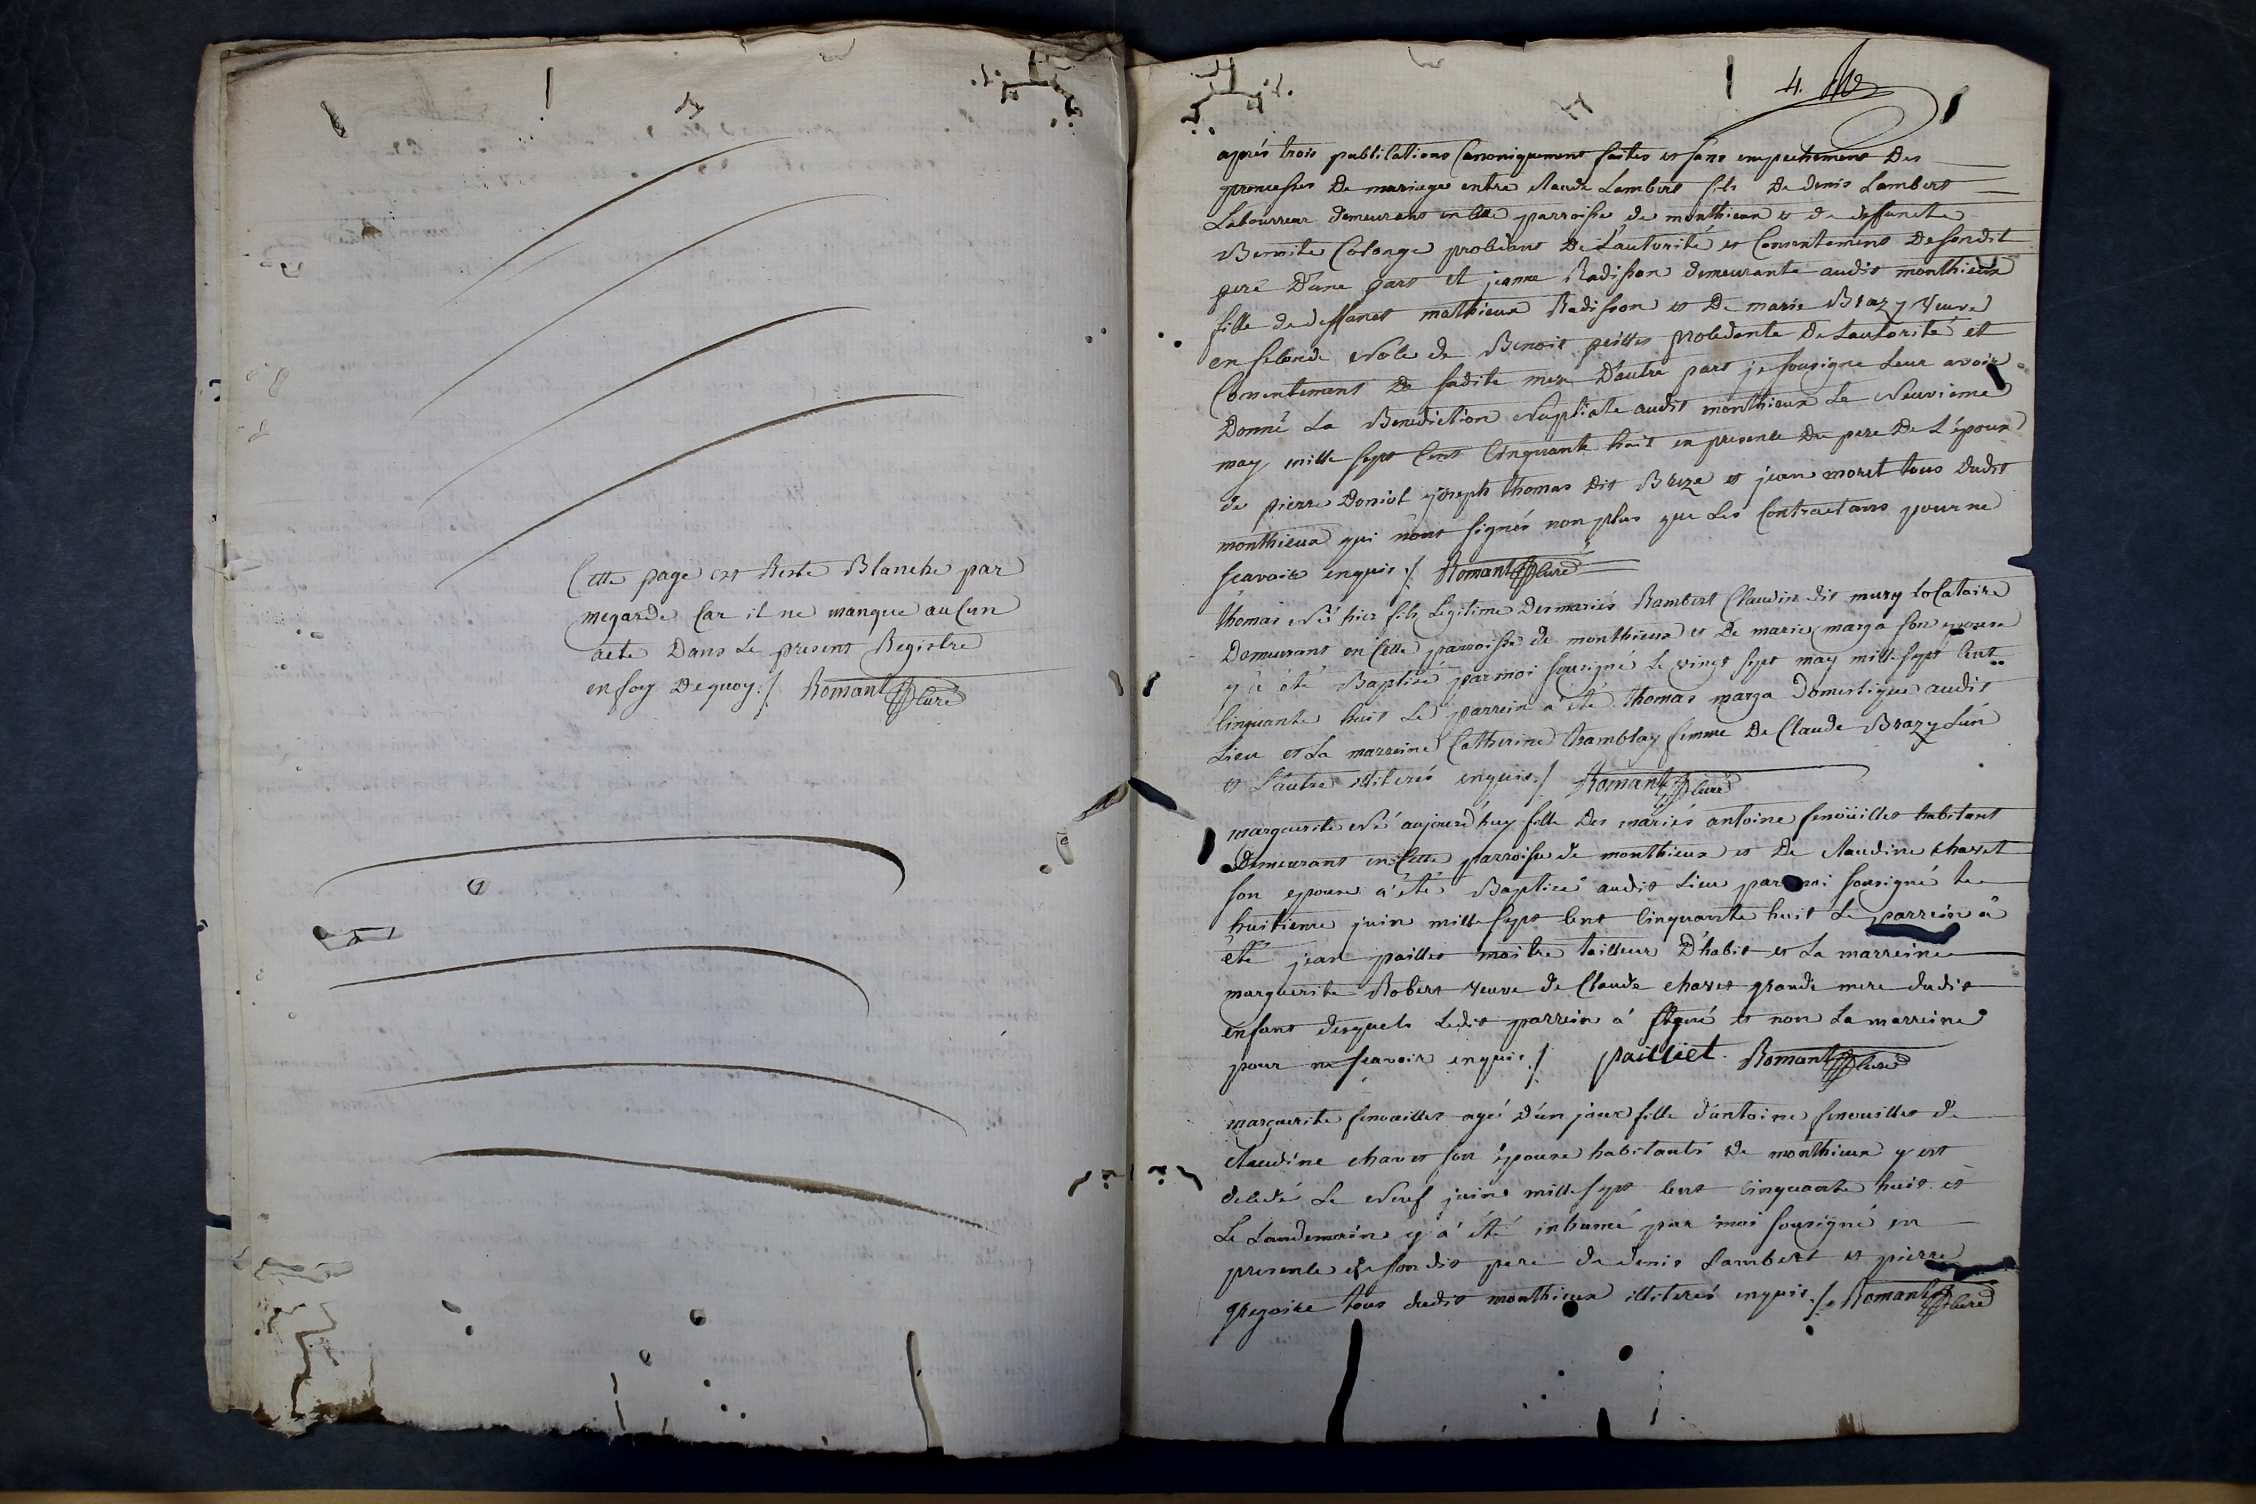 Cette page est Reste Blanche par
megarde Car il ne manque auCun
acte Dans Le present Registre
en foy Dequoy ./. Romant Curé
4.
aprés trois publications Canoniquement faites et sans empechement Des
promesses De mariage entre Claude Lambert fils De denis Lambert
Laboureur demeurant en Cette parroisse de monthieux et de deffuncte
Benoite Colonge procédant De L'autorité et Consentement De sondit
pere D'une part et jeanne Radisson demeurante audit monthieux
fille de deffunct mathieux Radisson et De marie Brazy veuve
en seconde Noce de Benoit peillet procedante De Lautorité et
Consentement De sadite mere D'autre part je sousigne Leur avoir
Donné La Benediction Nuptiale audit monthieux Le Neuvieme
may mille sept Cent Cinquante huit en presence Du pere De L'époux
de pierre Doniol joseph thomas Dit Breze et jean moret tous dudit
monthieux qui n'ont signés non plus que Les Contractans pour ne
scavoir enquis ./. Romant Curé
thomas Né hier fils Legitime des mariés Rambert Claudin dit mury LoCataire
Demeurant en Cette parroisse de monthieux et De marie marga son epouse
y a été Baptisé par moi sousigné Le vingt sept may mille sept Cent
Cinquante huit Le parrein a été thomas marga Domestique audit
Lieu et La marreine Catherine Chamblay femme De Claude Brazy L'un
et L'autre illiterés enquis ./. Romant Curé
marguerite Né aujourd'huy fille Des mariés antoine fenoüillet habitant
Demeurant en Cette parroisse de monthieux et De Claudine Chavet
son epouse a été Baptizé audit Lieu par moi sousigné Le
huitieme juin mille sept Cent Cinquante huit Le parrein a
été jean paillet maitre tailleur D'habit et La marreine
marguerite Robert veuve de Claude Chavet grande mere dudit
enfant desquels Ledit parrein a signé et non La marreine
pour ne scavoir enquis ./. pailliet. Romant Curé
marguerite fenouillet agé D'un jour fille d'antoine fenouillet &
Claudine Chavet son épouse habitants De monthieux y est
decedé Le Neuf juin mille sept Cent Cinquante huit et
Le Landemain y a été inhumé par moi sousigné en
presence de son dit pere de denis Lambert et pierre
gregoire tous dudit monthieux illiterés enquis ./. Romant Curé